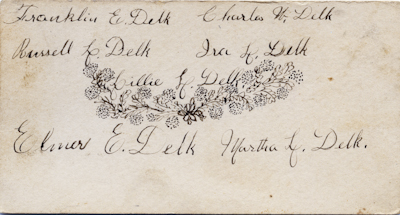 Franklin E. Delk Charles W. Delk
Russell L. Delk Ira L. Delk
Lillie L. Delk
Elmer E. Delk Martha L. Delk.